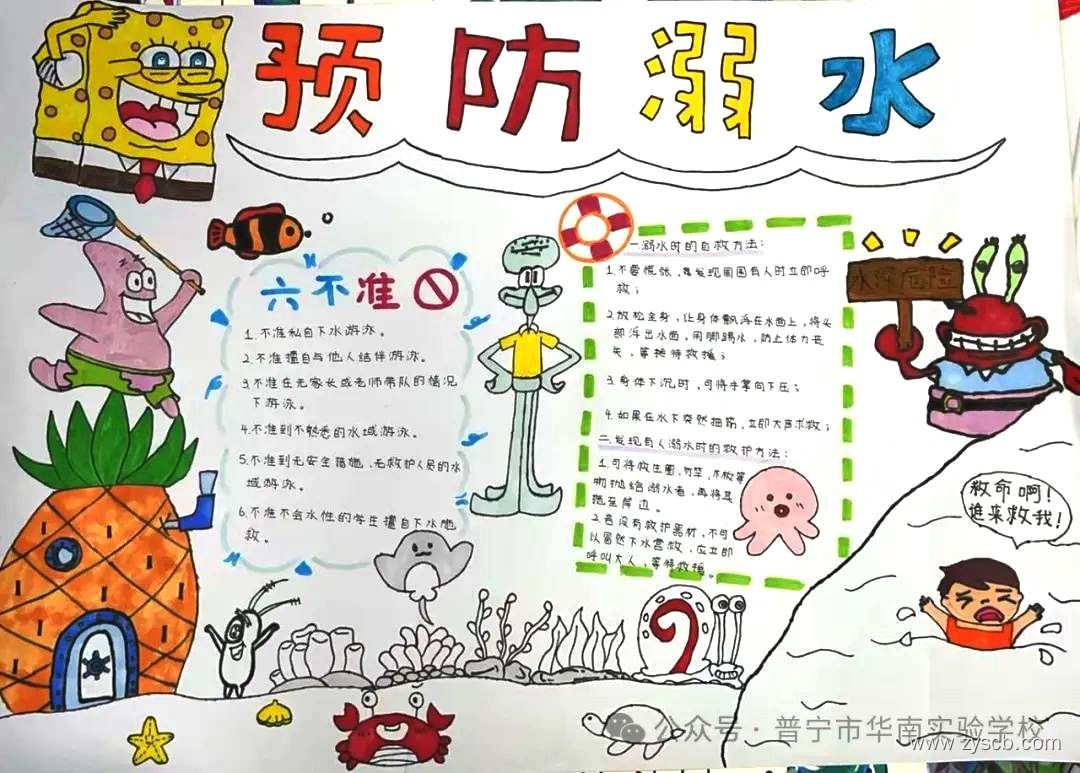 预防溺水
六不准
1.不准私自下水游泳。
2.不准擅自与他人结伴游泳。
3.不准在无家长或老师带队的情况
下游泳。
4.不准到不熟悉的水域游泳。
5.不准到无安全措施、无救护人员的水
域游泳。
6.不准不会水性的学生擅自下水施
救。
一.溺水时的自救方法:
1.不要慌张,发现周围有人时立即呼
救;
2.放松全身,让身体飘浮在水面上,将头
部浮出水面,用脚踢水,防止体力丧
失,等待救援;
3.身体下沉时,可将手掌向下压;
4.如果在水下突然抽筋,立即大声求救;
二.发现有人溺水时的救护方法:
1.可将救生圈、竹竿、木板等
物抛给溺水者,再将其
拖至岸边。
2.若没有救护器材,不可
以冒然下水营救,应立即
呼叫大人,等待救援。
水深危险
救命啊!
谁来救我!
公众号·普宁市华南实验学校
www.zyscb.com